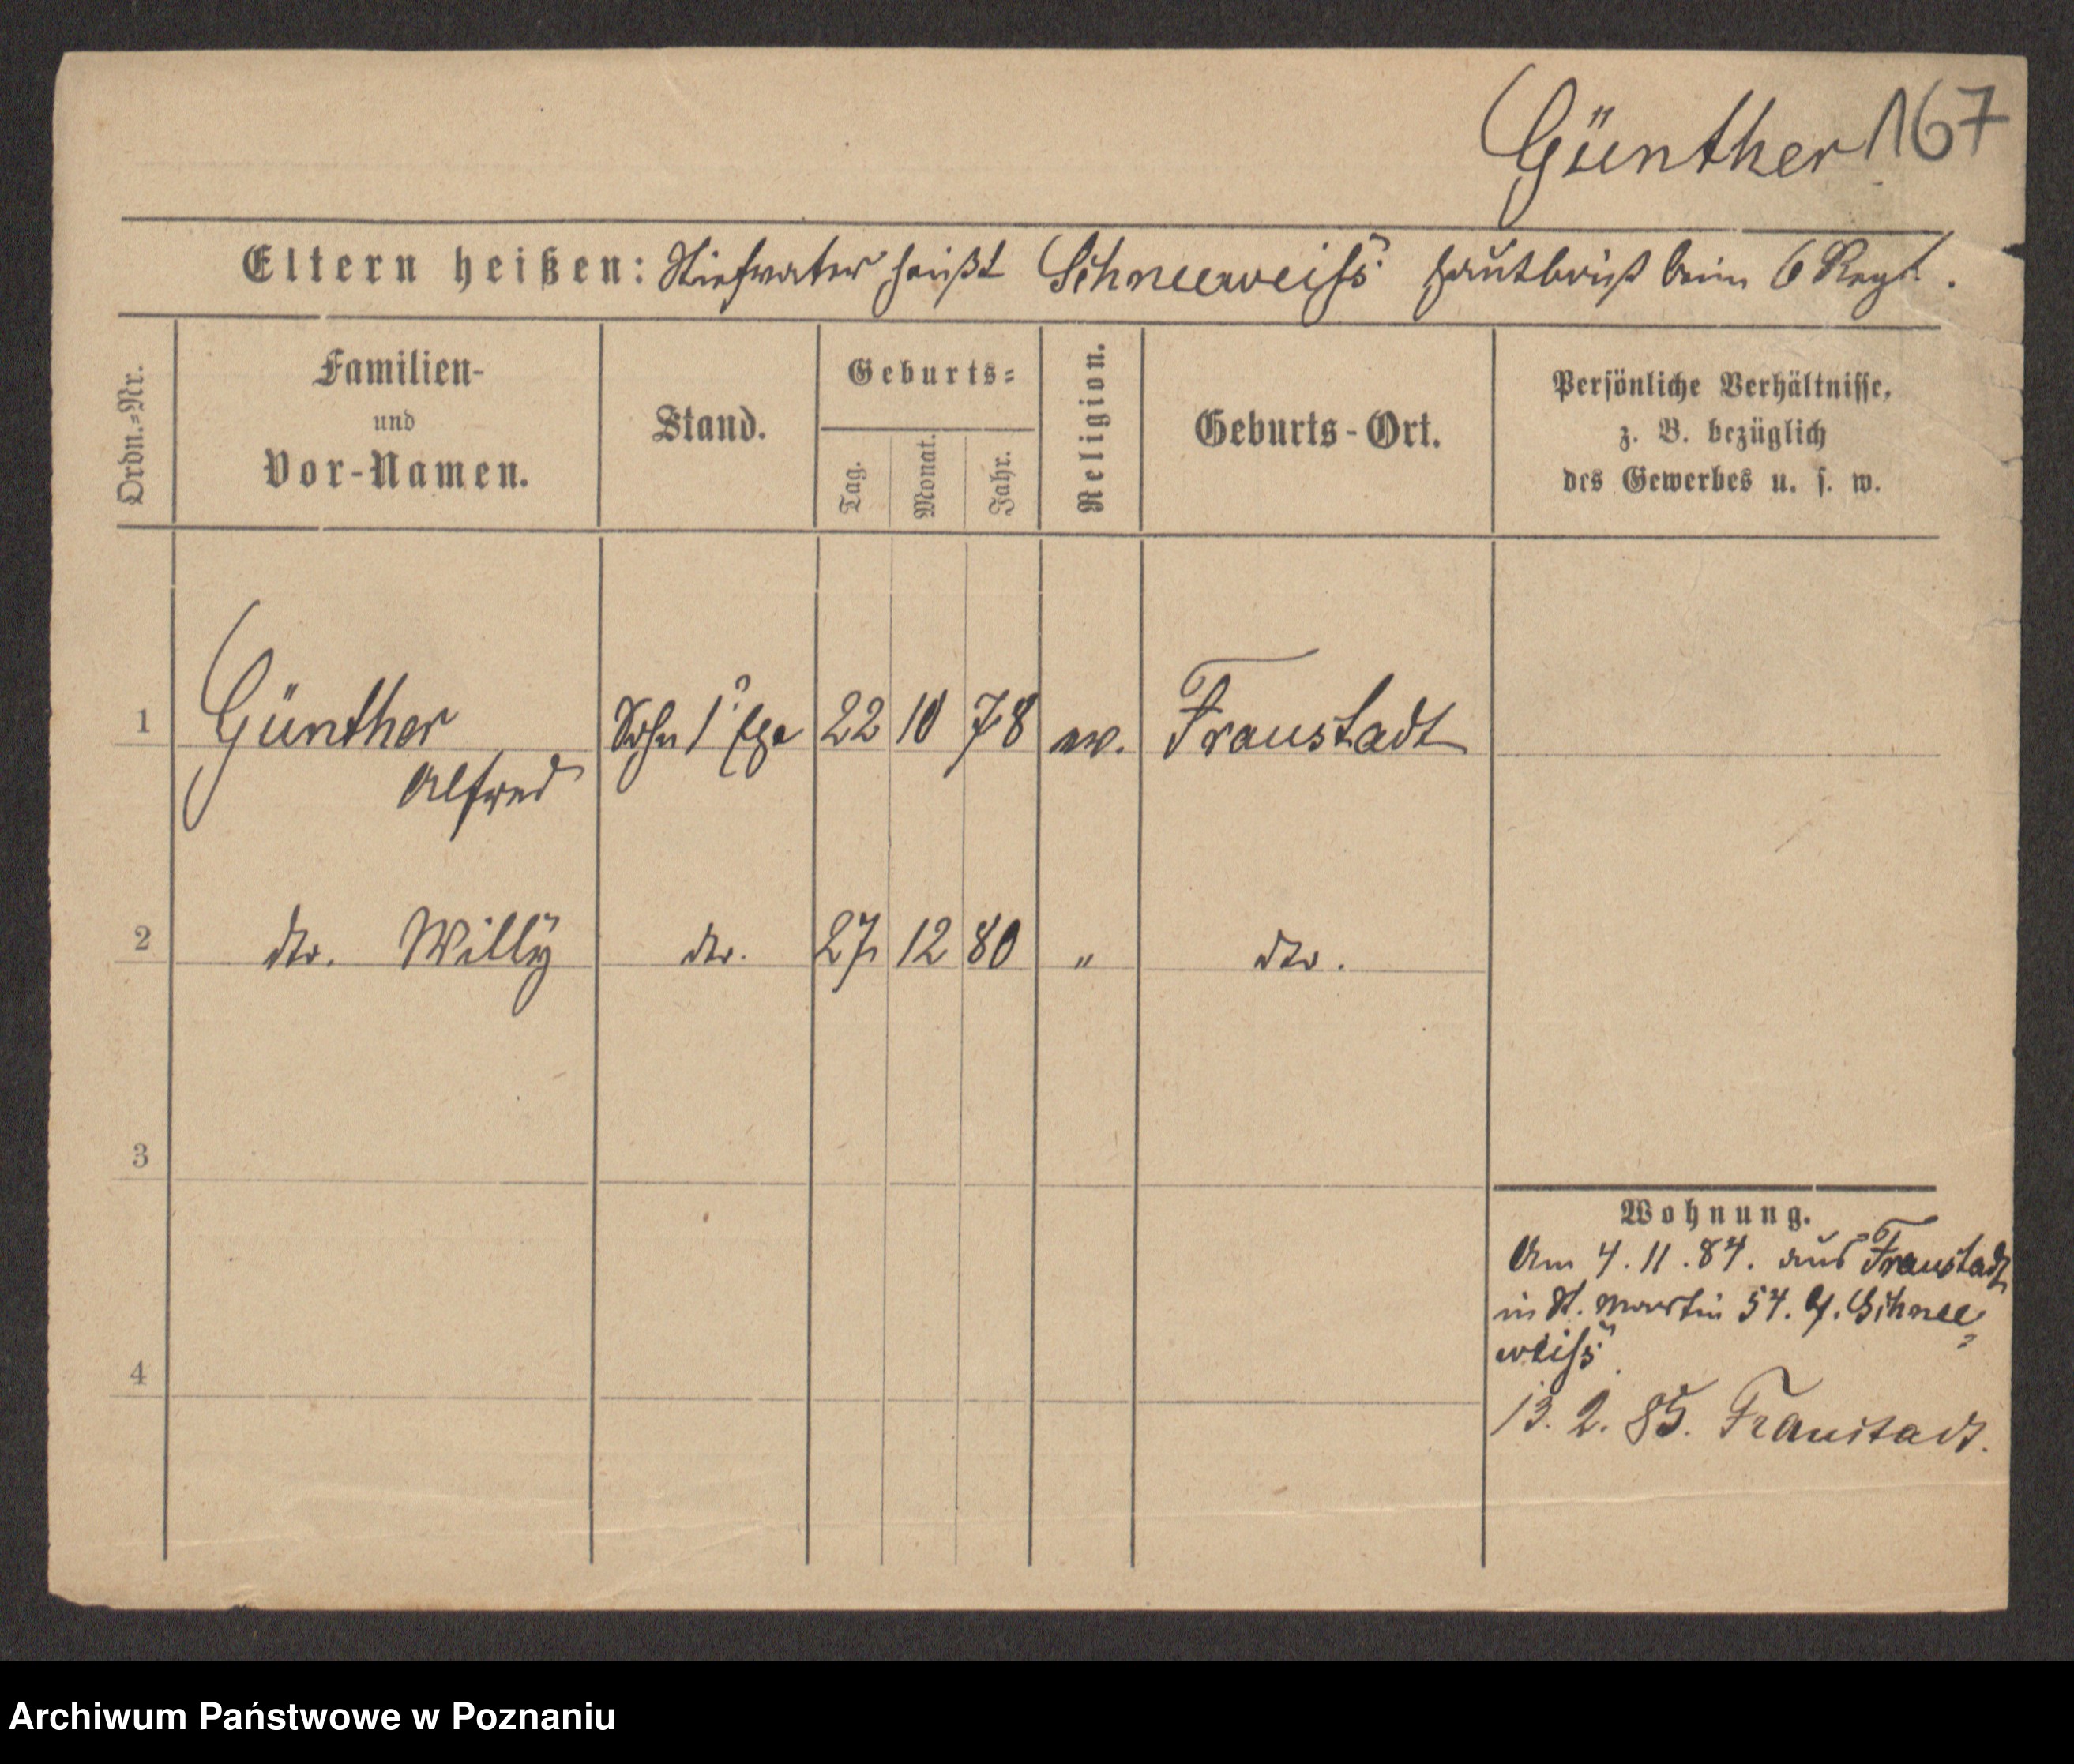 Günther 167
Eltern heißen: Stiefvater heißt Schneeweiß Hautboist beim 6 Regt.
Ordn.=Nr.
Familien-
und
Vor-Namen.
Stand.
Geburts=
Tag.
Monat.
Jahr.
Religion.
Geburts-Ort.
Persönliche Verhältnisse,
z. B. bezüglich
des Gewerbes u. s. w.
1 Günther Sohn 1r Ehe 22 10 78 ev. Fraustadt
Alfred
2 dto. Willy dto. 27 12 80 " dto.
3
Wohnung.
Am 4.11.84. aus Fraustadt
in St. Martin 54. b. Schnee=
weiß
4
13. 2. 85. Fraustadt.
Archiwum Państwowe w Poznaniu